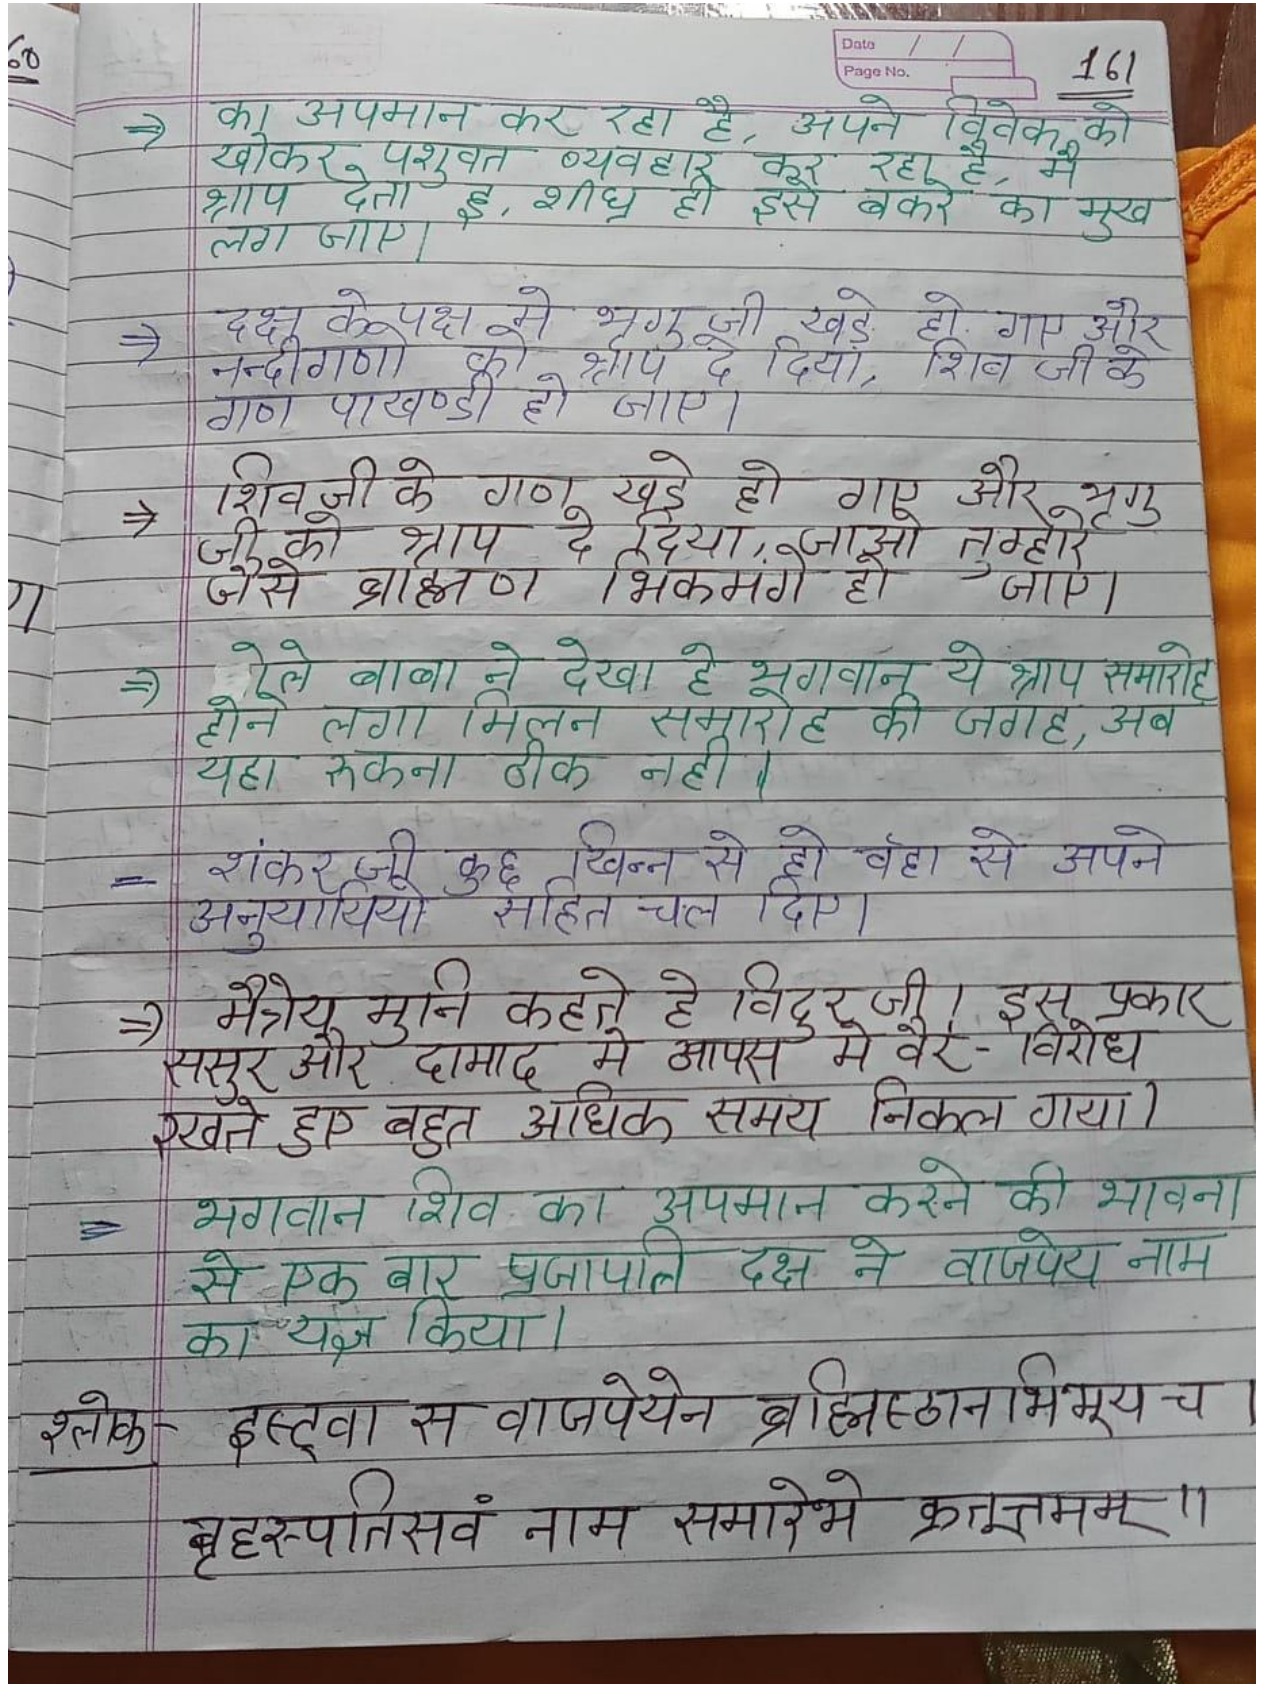 60
Date / /
Page No.
161
⇒ का अपमान कर रहा है, अपने विवेक को
खोकर पशुवत व्यवहार कर रहा है, मै
श्राप देता हु, शीघ्र ही इसे बकरे का मुख
लग जाए।
⇒ दक्ष के पक्ष मे भृगु जी खड़े हो गए और
नन्दीगणो को श्राप दे दिया, शिव जी के
गण पाखण्डी हो जाए।
⇒ शिवजी के गण खड़े हो गए और भृगु
जी को श्राप दे दिया, जाओ तुम्हारे
जैसे ब्राह्मण भिकमंगे हो जाए।
⇒ बाबा ने देखा हे भगवान ये श्राप समारोह
होने लगा मिलन समारोह की जगह, अब
यहा रुकना ठीक नही।
= शंकर जी कुछ खिन्न से हो वहा से अपने
अनुयायियो सहित चल दिए।
⇒ मैत्रेय मुनि कहते हे विदुर जी। इस प्रकार
ससुर और दामाद मे आपस मे वैर - विरोध
रखते हुए बहुत अधिक समय निकल गया।
= भगवान शिव का अपमान करने की भावना
से एक बार प्रजापति दक्ष ने वाजपेय नाम
का यज्ञ किया।
श्लोक - इस्ट्वा स वाजपेयेन ब्रह्मिस्ठानभिभूय च।
बृहस्पतिसवं नाम समारेभे क्रतूत्तमम्॥